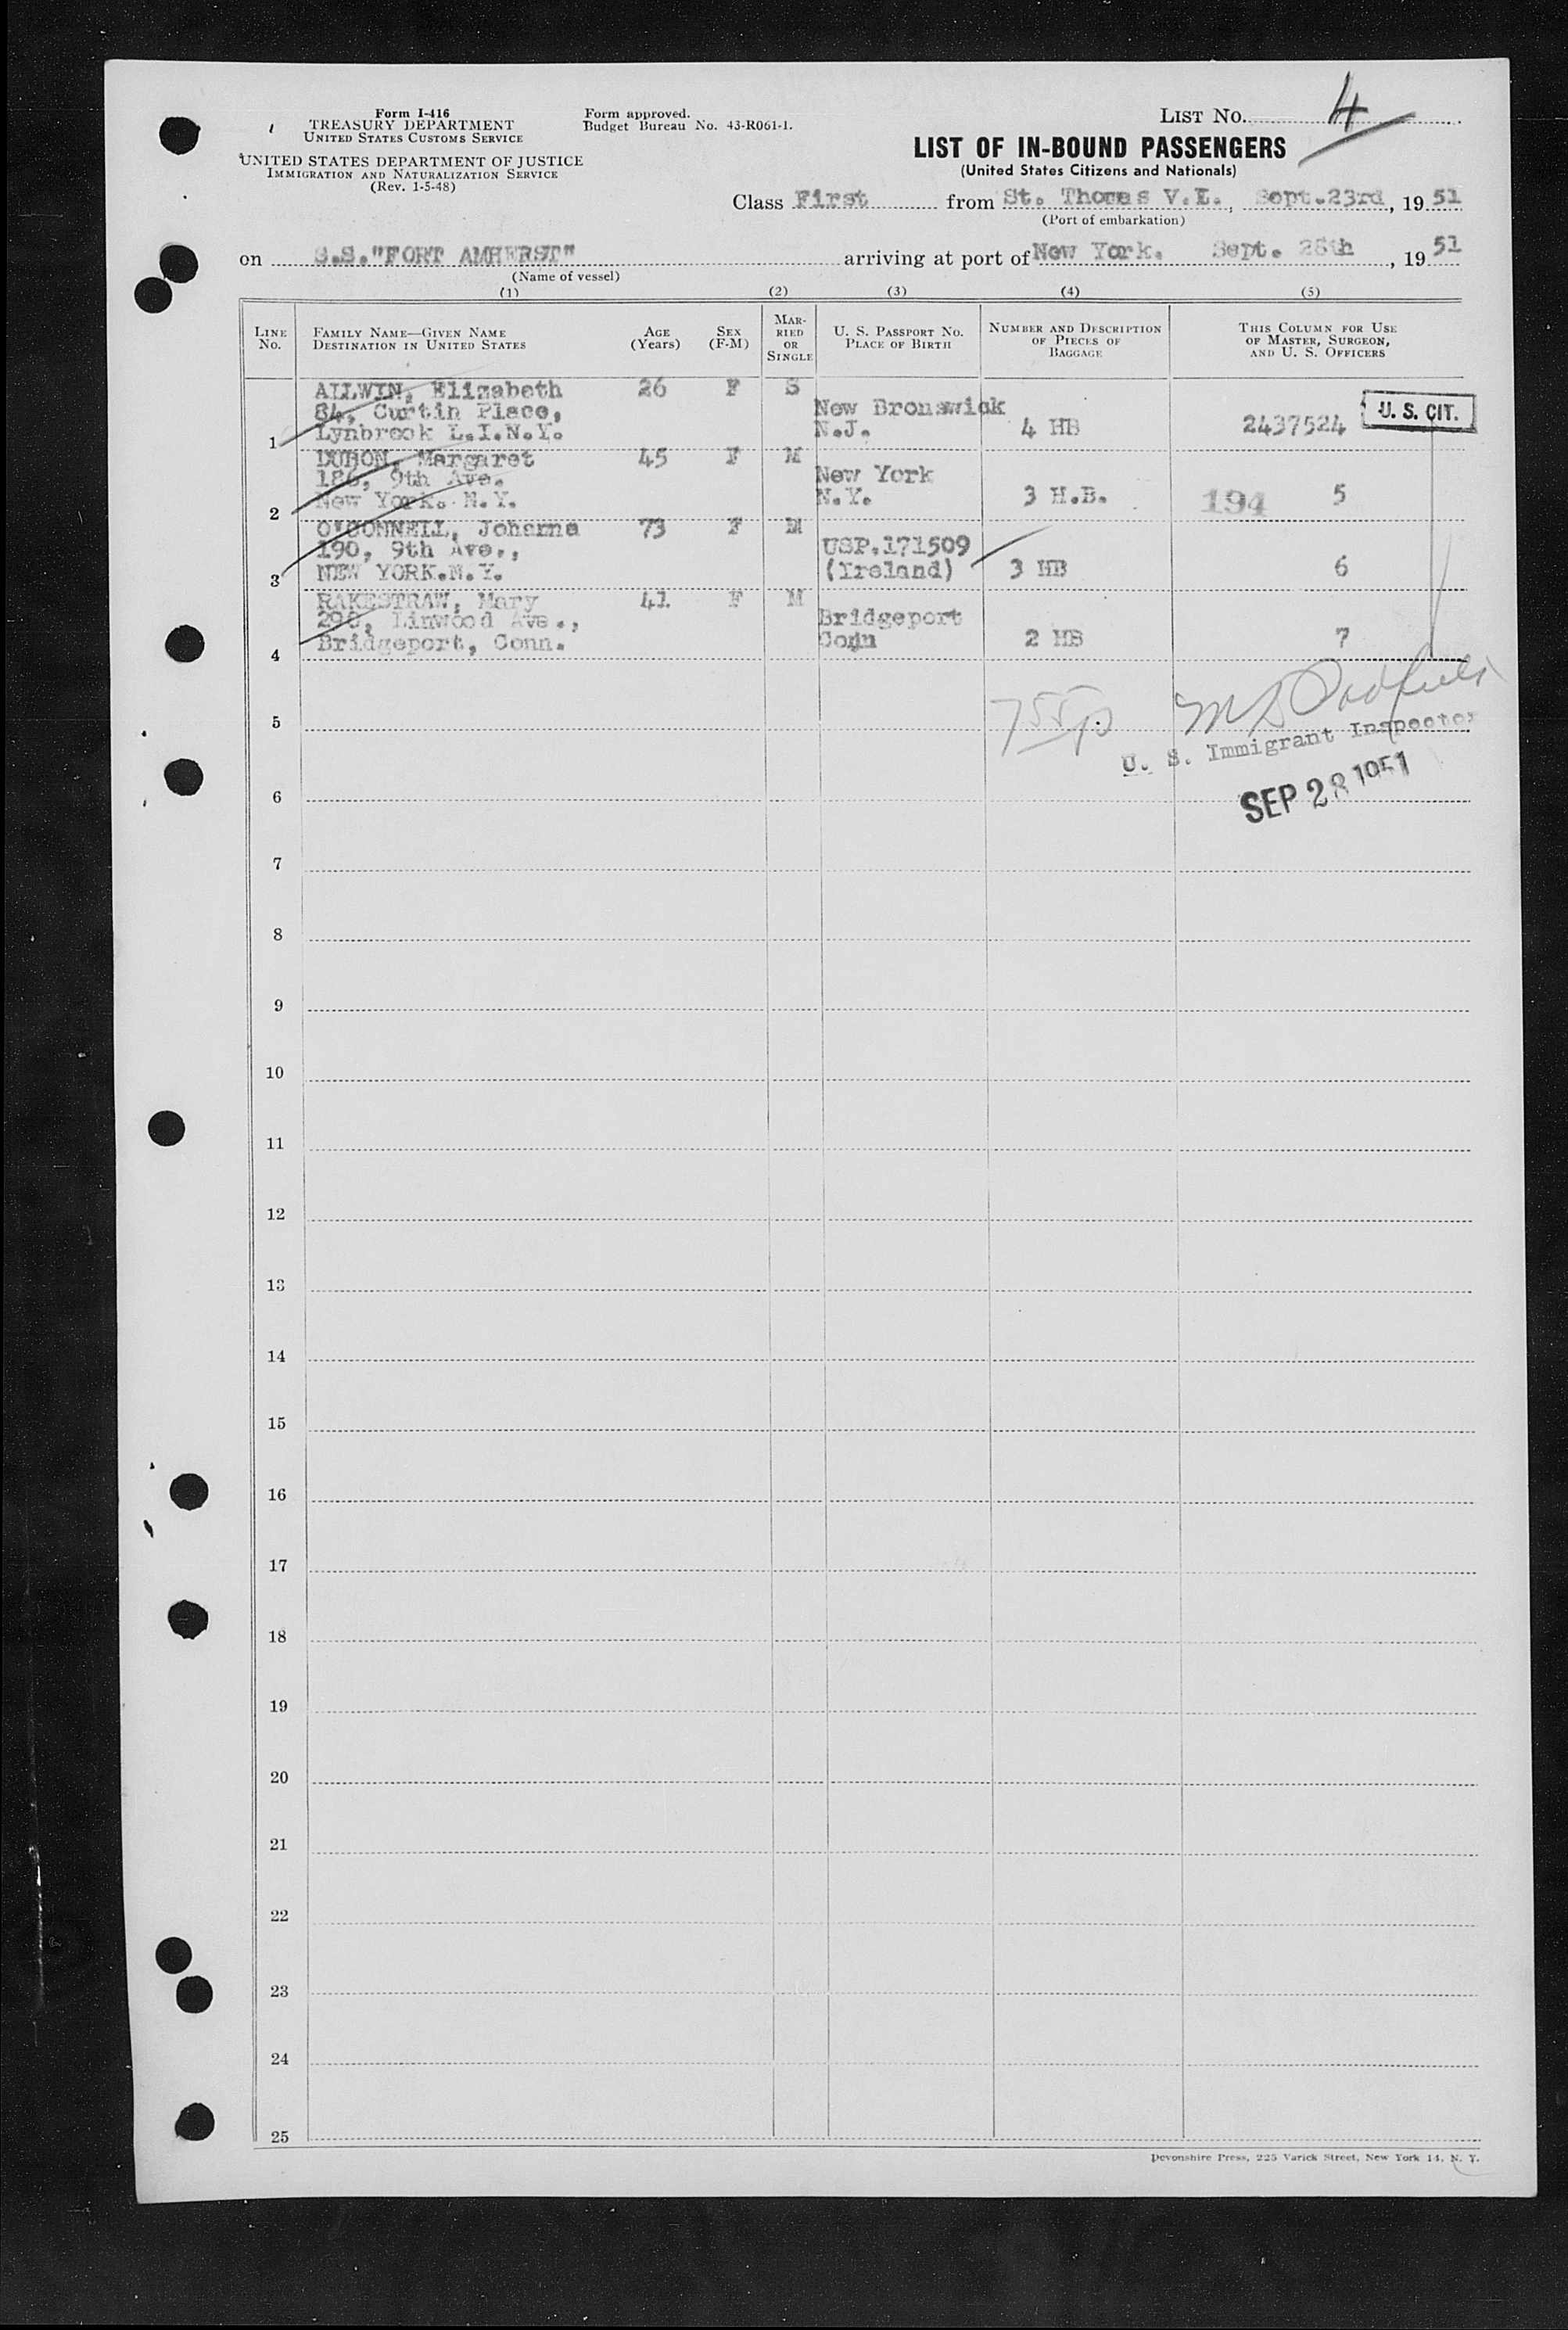 Form I-416
TREASURY DEPARTMENT
UNITED STATES CUSTOMS SERVICE
UNITED STATES DEPARTMENT OF JUSTICE
IMMIGRATION AND NATURALIZATION SERVICE
(Rev. 1-5-48)
Form approved.
Budget Bureau No. 43-R061-1.
LIST NO. 4
LIST OF IN-BOUND PASSENGERS
(United States Citizens and Nationals)
Class First from St. Thomas V.I., Sept.23rd, 19 51
(Port of embarkation)
on S.S."FORT AMHERST" arriving at port of New York. Sept. 28th, 19 51
(Name of vessel)
(1) (2) (3) (4) (5)
LINE NO.
FAMILY NAME—GIVEN NAME
DESTINATION IN UNITED STATES
AGE (Years)
SEX (F-M)
MARRIED OR SINGLE
U. S. PASSPORT NO.
PLACE OF BIRTH
NUMBER AND DESCRIPTION
OF PIECES OF
BAGGAGE
THIS COLUMN FOR USE
OF MASTER, SURGEON,
AND U. S. OFFICERS
ALLWIN, Elizabeth 26 F S
84, Curtin Place, New Bronswick
1 Lynbrook L.I.N.Y. N.J. 4 HB 2437524 U. S. CIT.
Margaret 45 F M
186, 9th Ave. New York
2 New York. N.Y. N.Y. 3 H.B. 194 5
O'CONNELL, Johanna 73 F M
190, 9th Ave., USP.171509
3 NEW YORK.N.Y. (Ireland) 3 HB 6
RAKESTRAW, Mary 41 F M
290, Linwood Ave., Bridgeport
4 Bridgeport, Conn. Conn 2 HB 7
5
U. S. Immigrant Inspector
6 SEP 28 1951
7
8
9
10
11
12
13
14
15
16
17
18
19
20
21
22
23
24
25
Devonshire Press, 225 Varick Street, New York 14, N. Y.